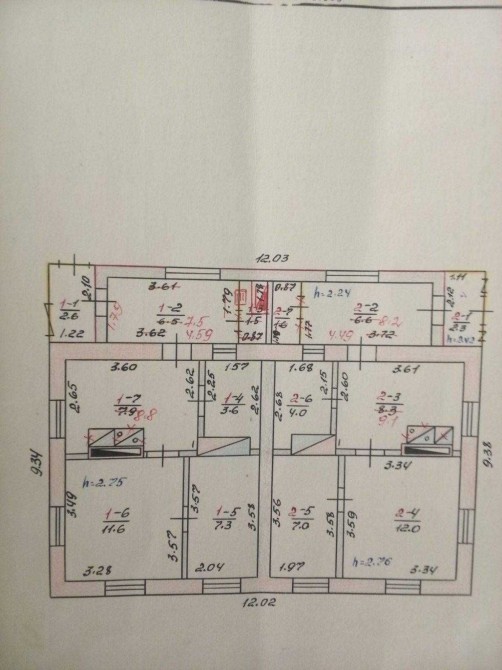 12.03
1-1
2.6
2.10
1.22
1.79
3.61
1-2
6.5 7.5
3.62 4.59
1.79
1.5
0.87
0.87
2-7
1.6
1.77
h=2.24
2-2
6.6 8.2
4.49 3.72
1.11
2.12
2-1
h=2.42
3.60
2.65
1-7
7.9 8.8
2.62
1.57
2.25
1-4
3.6
2.62
1.68
2.68
2-6
4.0
2.15
2.60
3.61
2-3
8.3
9.1
9.34
9.38
h=2.75
3.49
1-6
11.6
3.57
3.28
3.57
1-5
7.3
3.58
2.04
3.56
2-5
7.0
3.58
1.97
3.34
3.59
2-4
12.0
h=2.76
3.34
12.02